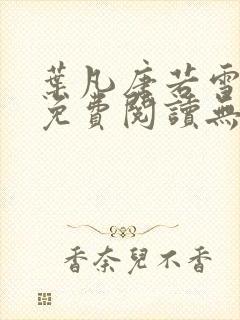 葉凡唐若雪
免費閱讀無
香奈兒不香